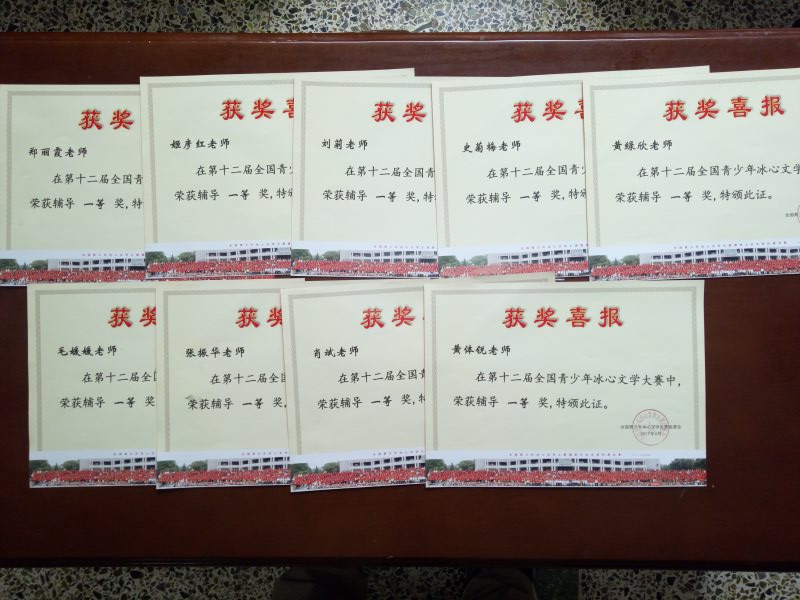 获奖
郑丽霞老师
在第十二届全国青
荣获辅导 一等 奖,特
获奖喜
姬彦红老师
在第十二届全国青少
荣获辅导 一等 奖,特颁
获奖
刘莉老师
在第十二届全国青
荣获辅导 一等 奖,特
获奖喜
史菊梅老师
在第十二届全国青少
荣获辅导 一等 奖,特颁
获奖喜报
黄绿欣老师
在第十二届全国青少年冰心文学
荣获辅导 一等 奖,特颁此证。
获奖
毛媛媛老师
在第十二届全国
荣获辅导 一等 奖
获奖
张振华老师
在第十二届全国
荣获辅导 一等 奖,
获奖
肖斌老师
在第十二届全国青
荣获辅导 一等 奖,特
获奖喜报
黄体锐老师
在第十二届全国青少年冰心文学大赛中,
荣获辅导 一等 奖,特颁此证。
全国青少年冰心文学大赛组委会